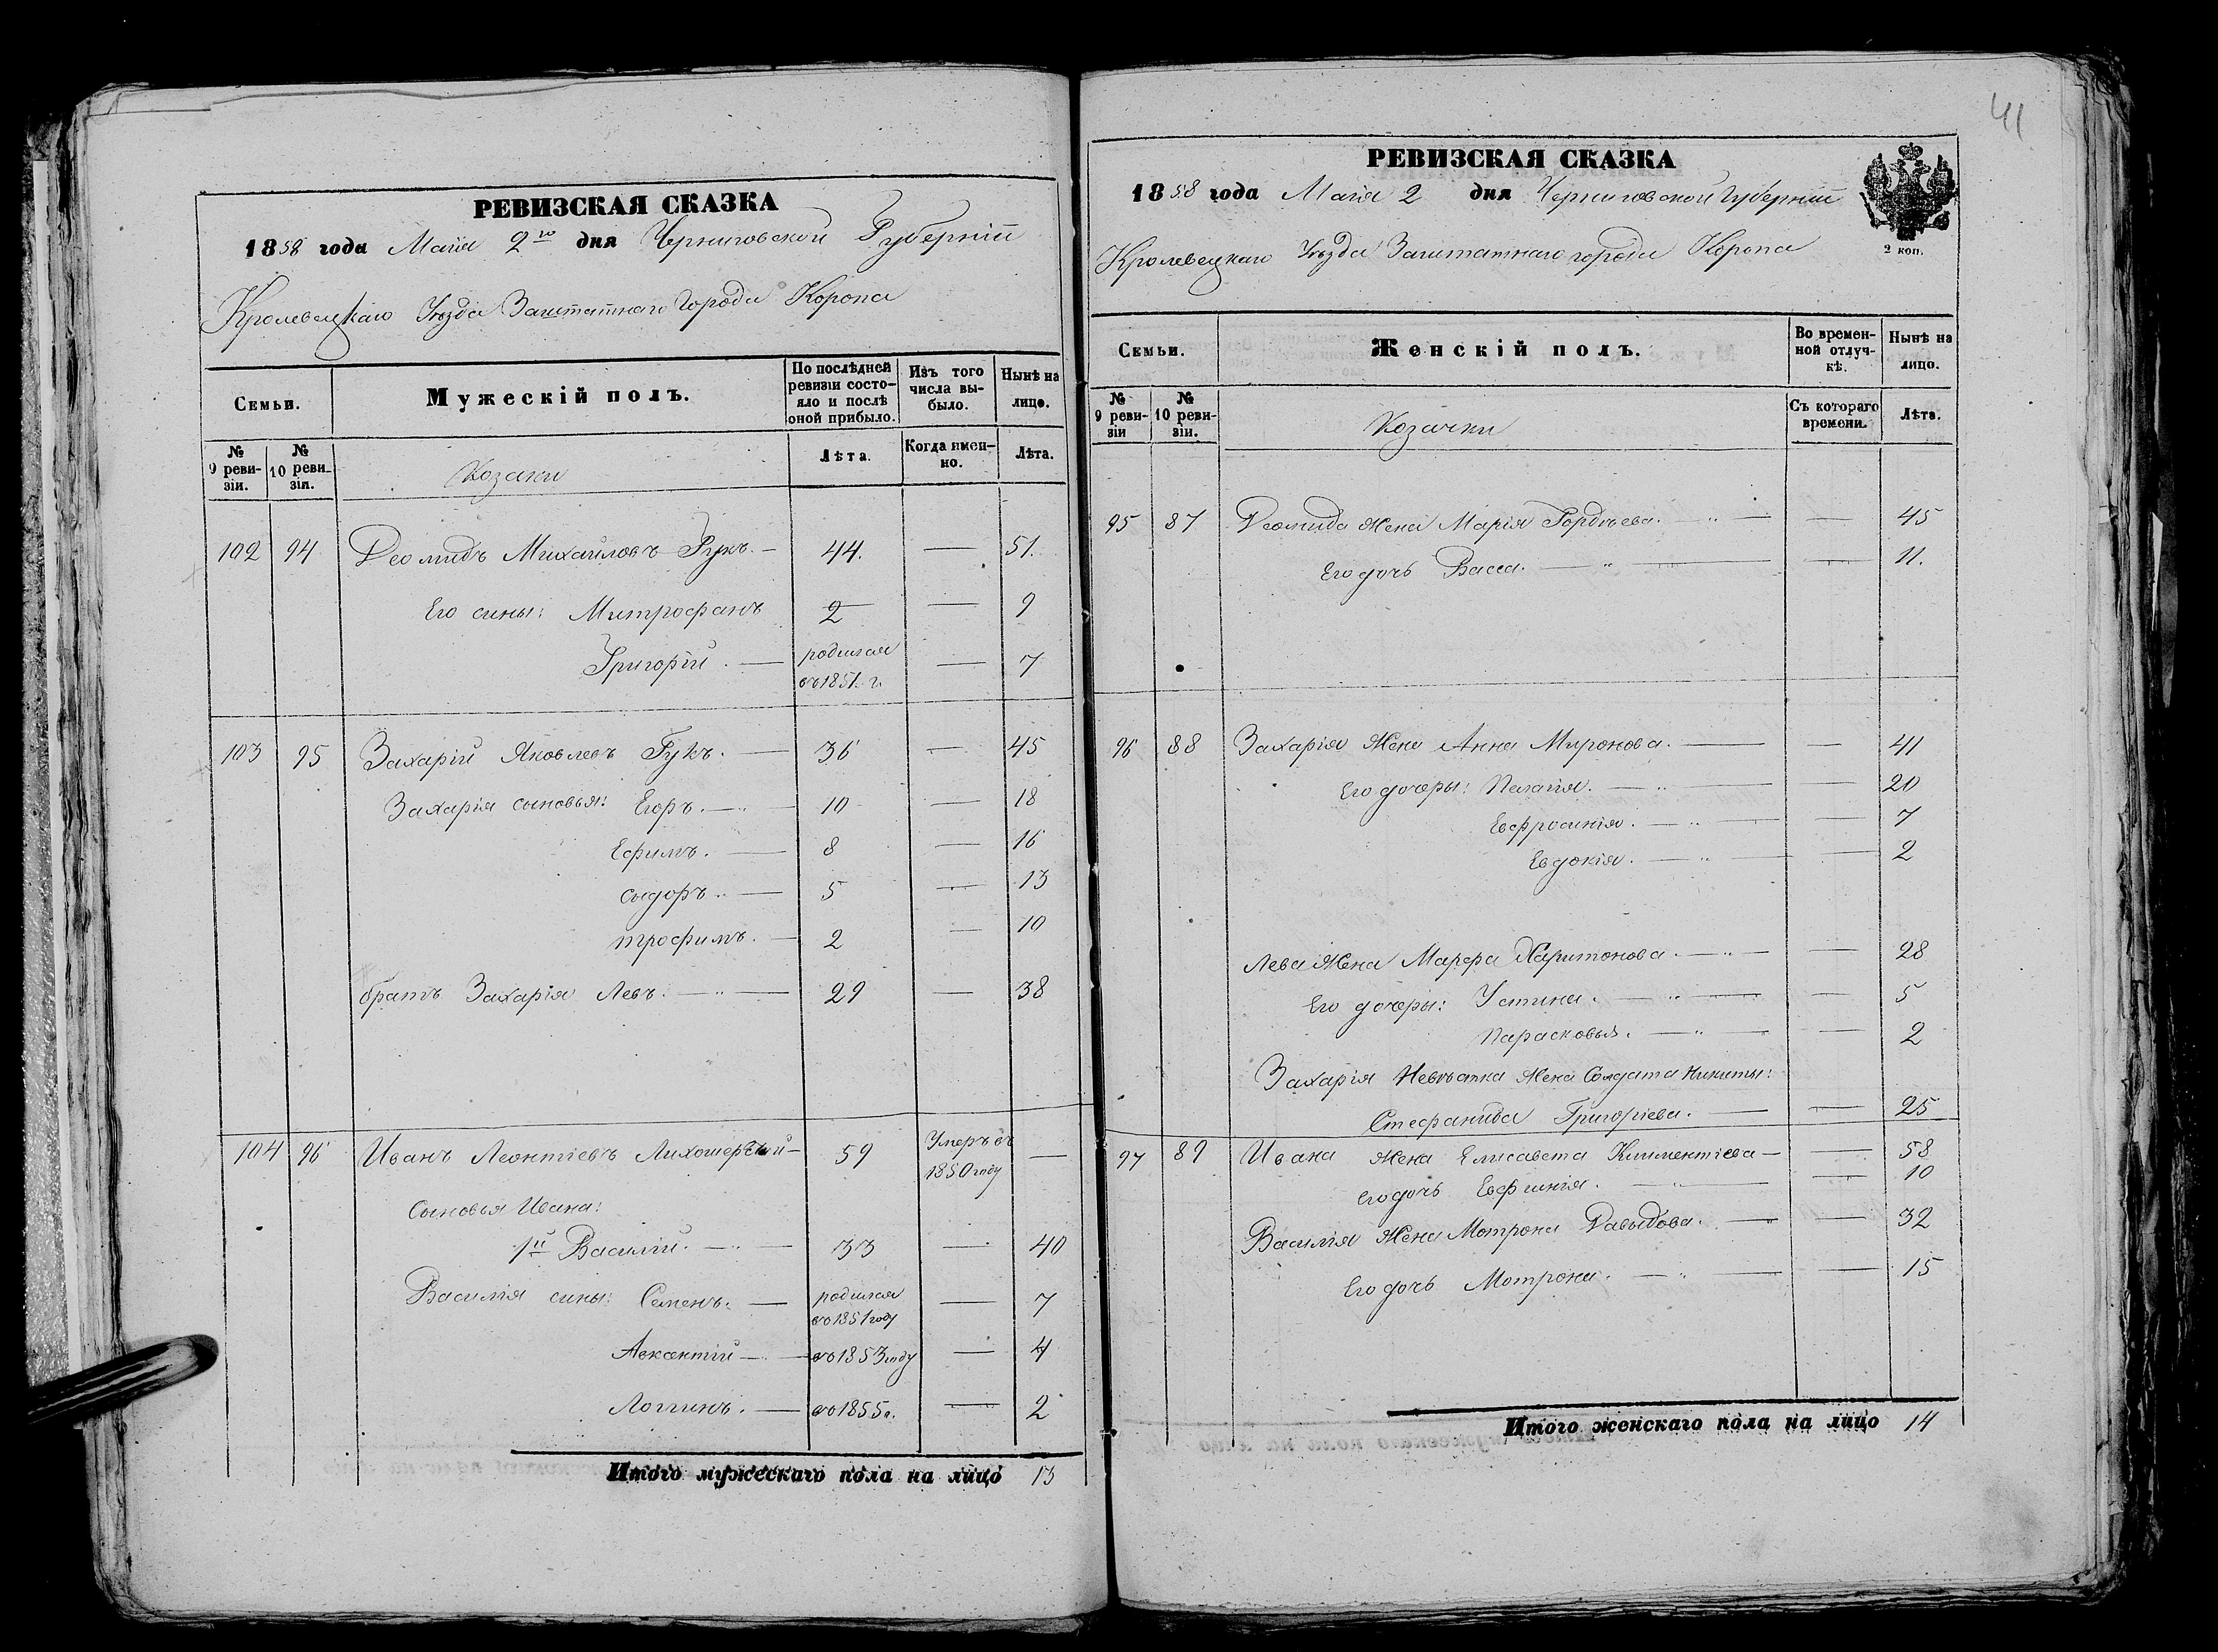 41
РЕВИЗСКАЯ СКАЗКА
1858 года Маія 2го дня Черниговской Губерніи
Кролевецкаго Уѣзда Заштатнаго Города Коропа
Семьи.
Мужескій полъ.
По послѣдней ревизіи состояло и послѣ оной прибыло.
Изъ того числа выбыло.
Нынѣ на лице.
№ 9 ревизіи.
№ 10 ревизіи.
Козаки
Лѣта.
Когда именно.
Лѣта.
102 94 Деомидъ Михайловъ Гукъ. — 44. — 51.
Его сины: Митрофанъ 2 — 9
Григорій. — родился въ 1851. г. — 7
103 95 Захарій Яковлевъ Гукъ. — 36 — 45
Захарія сыновья: Егоръ. — 10 — 18
Ефимъ. — 8 — 16
Сыдоръ. — 5 — 13
Трофимъ. — 2 — 10
братъ Захарія Левъ. — 29 — 38
104 96 Иванъ Леонтіевъ — 59 Умеръ въ 1850 году —
Сыновья Ивана:
1й Василій. — 33 — 40
Василія сины: Семенъ. — родился въ 1851 году — 7
Авксентій — въ 1853 году — 4
Логгинъ. — въ 1855 г. — 2
Итого мужескаго пола на лицо 13
РЕВИЗСКАЯ СКАЗКА
1858 года Маія 2 дня Черниговской Губерніи
Кролевецкаго Уѣзда Заштатнаго города Коропа
2 коп.
Семьи.
Женскій полъ.
Во временной отлучкѣ.
Нынѣ на лицо.
№ 9 ревизіи
№ 10 ревизіи.
Козачки
Съ котораго времени.
Лѣта.
95 87 Деомида Жена Марія Гордѣева. — 45
Его дочь Васса. — 11.
96 88 Захарія Жена Анна Миронова. — 41
Его дочеры: Пелагія. — 20
Евфросинія. — 7
Евдокія. — 2
Лева Жена Марфа Харитонова. — 28
Его дочеры: Устина. — 5
Парасковья. — 2
Захарія Невѣстка Жена Солдата Никиты:
Стефанида Григоріева. — 25
97 89 Ивана Жена Елисавета Климентіева — 58
Его дочь Евфимія. — 10
Василія Жена Мотрона Давыдова. — 32
Его дочь Мотрона. — 15
Итого женскаго пола на лицо 14